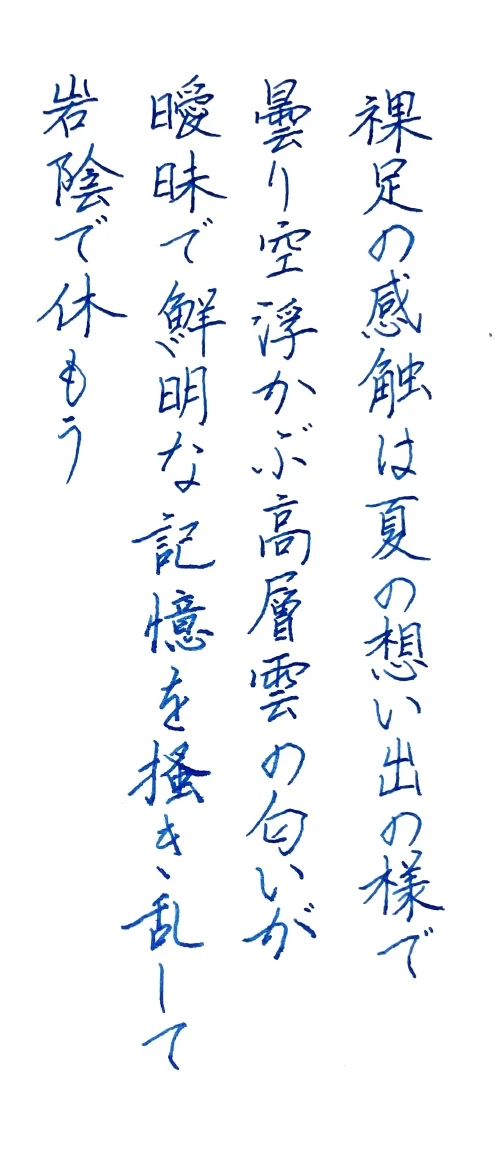 裸足の感触は夏の想い出の様で
曇り空浮かぶ高層雲の匂いが
曖昧で鮮明な記憶を掻き乱して
岩陰で休もう